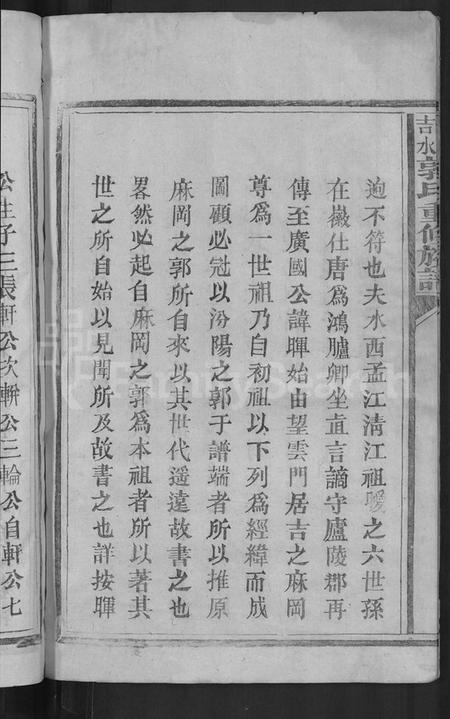 吉水郭氏重修族譜
逈不符也夫水西孟江清江祖曖之六世孫
在徽仕唐爲鴻臚卿坐直言謫守廬陵郡再
傳至廣國公諱暉始由望雲門居吉之麻岡
尊爲一世祖乃自初祖以下列爲經緯而成
圖顧必冠以汾陽之郭于譜端者所以推原
麻岡之郭所自來以其世代遥遠故書之也
畧然必起自麻岡之郭爲本祖者所以著其
世之所自始以見聞所及故書之也詳按暉
公生子三長軒公次輧公三輪公自軒公七
FamilySearch